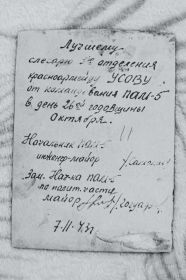 Лучшему
слесарю 5го отделения
красноармейцу УСОВУ
от командования ПАМ-5
в день 26ой годовщины
Октября.
Начальник ПАМ-5
инженер-майор
Зам. Нач-ка ПАМ-5
по полит. части
майор
7-11-43г.